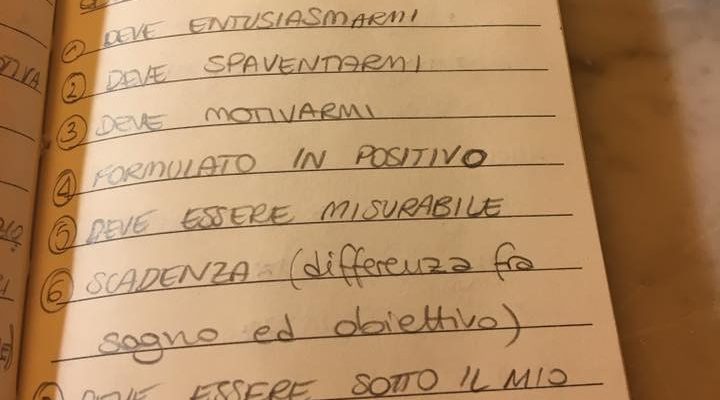 ① DEVE ENTUSIASMARMI
② DEVE SPAVENTARMI
③ DEVE MOTIVARMI
④ FORMULATO IN POSITIVO
⑤ DEVE ESSERE MISURABILE
⑥ SCADENZA (differenza fra
sogno ed obiettivo)
DEVE ESSERE SOTTO IL MIO